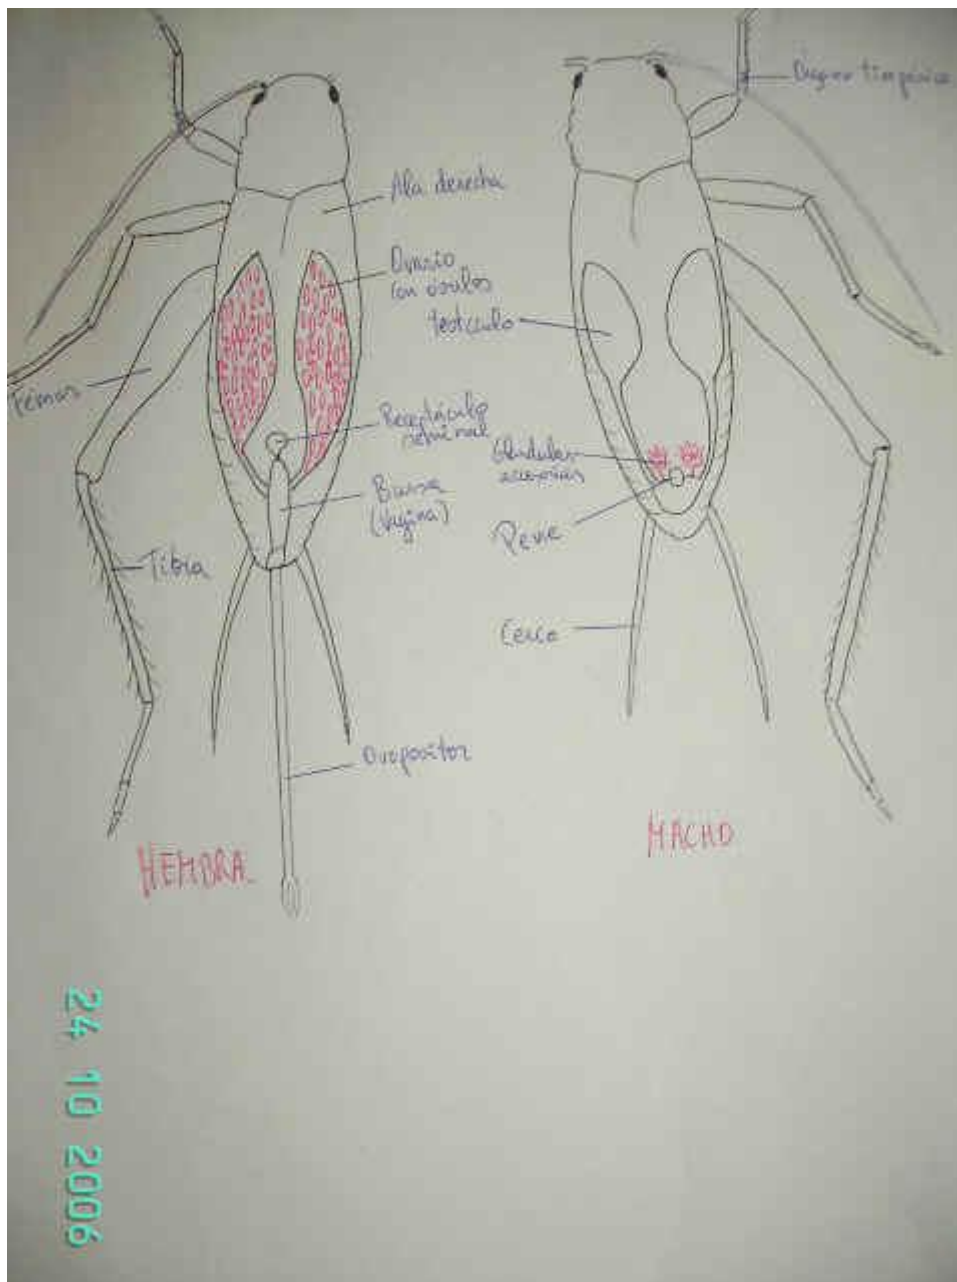 Órgano timpánico
Ala derecha
Ovario
con óvulos
Testículo
Femur
Receptáculo
seminal
Glándulas
accesorias
Bursa
(Vagina)
Pene
Tibia
Cerco
Ovopositor
MACHO
HEMBRA
24 10 2006